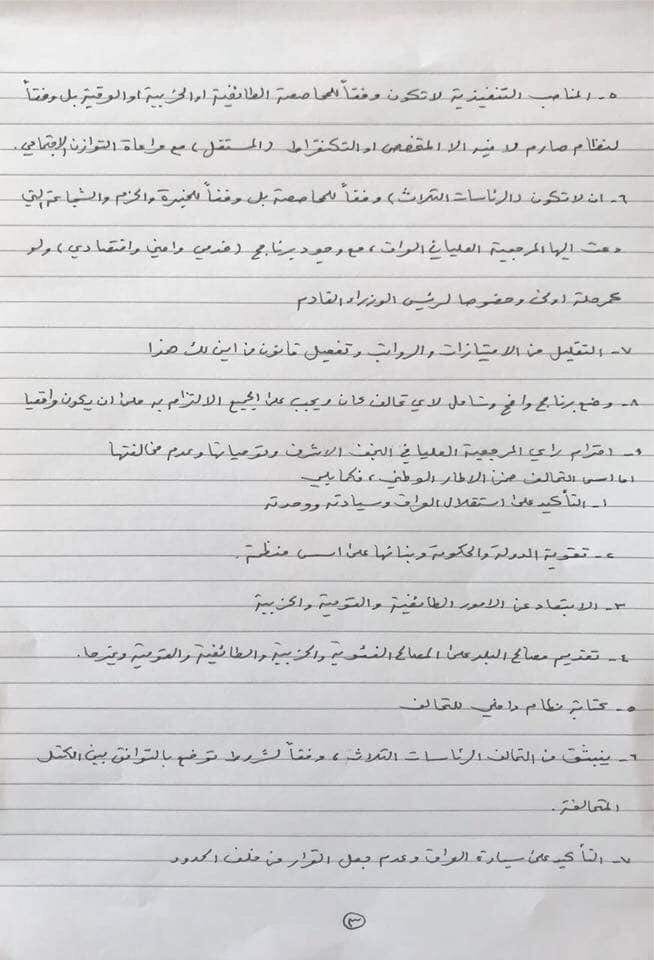 ٥- المناصب التنفيذية لا تكون وفقاً للمحاصصة الطائفية او الحزبية او العرقية بل وفقاً
لنظام صارم لا فيه الا المتخصص او التكنقراط (المستقل) مع مراعاة التوازن الاجتماعي.
٦- ان لا تكون (الرئاسات الثلاث) وفقاً للمحاصصة بل وفقاً للخبرة والحزم والشجاعة التي
دعت اليها المرجعية العليا في العراق، مع وجود برنامج (خدمي وامني واقتصادي) ولو
كمرحلة اولى وخصوصا لرئيس الوزراء القادم
٧- التقليل من الامتيازات والرواتب وتفعيل قانون من اين لك هذا
٨- وضع برنامج واضح وشامل لاي تحالف كان ويجب على الجميع الالتزام به على ان يكون واقعيا
٩- احترام راي المرجعية العليا في النجف الاشرف وتوصياتها وعدم مخالفتها
اما اسس التحالف ضمن الاطار الوطني، فكما يلي
١- التأكيد على استقلال العراق وسيادته ووحدته
٢- تقوية الدولة والحكومة وبنائها على اسس منظمة.
٣- الابتعاد عن الامور الطائفية والقومية والحزبية
٤- تقديم مصالح البلد على المصالح الفئوية والحزبية والطائفية والقومية وغيرها.
٥- كتابة نظام داخلي للتحالف
٦- ينبثق من التحالف الرئاسات الثلاث، وفقاً لشروط توضع بالتوافق بين الكتل
المتحالفة.
٧- التأكيد على سيادة العراق وعدم جعل القرار من خلف الحدود
٣